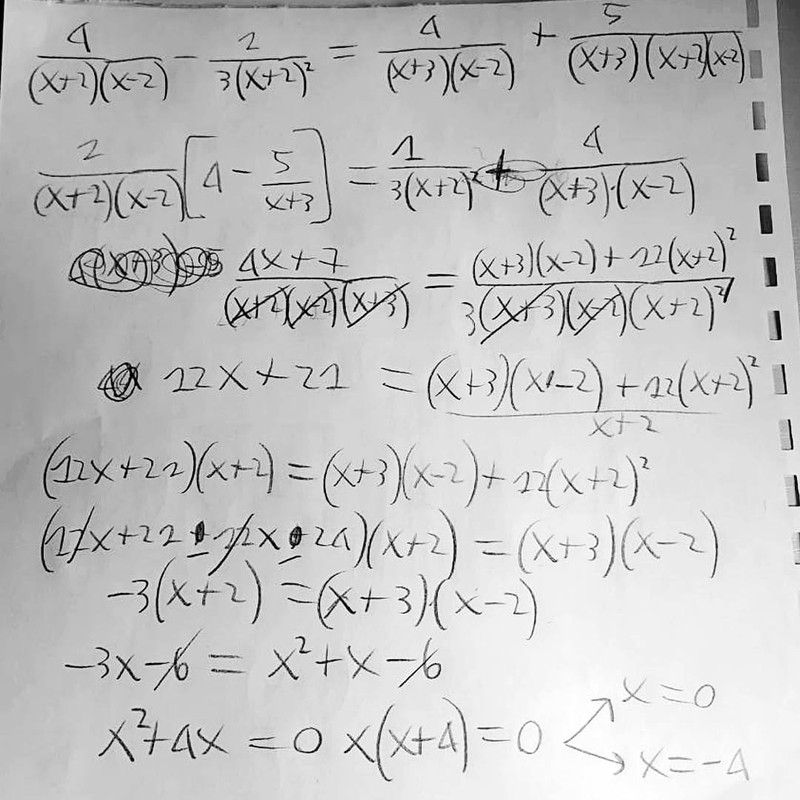 4/((x+2)(x-2)) - 2/(3(x+2)²) = 4/((x+3)(x-2)) + 5/((x+3)(x+2)(x-2))
2/((x+2)(x-2)) [4 - 5/(x+3)] = 1/(3(x+2)²) + 4/((x+3)·(x-2))
(4x+7)/((x+2)(x-2)(x+3)) = ((x+3)(x-2)+12(x+2)²)/(3(x+3)(x-2)(x+2)²)
12x+21 = ((x+3)(x-2)+12(x+2)²)/(x+2)
(12x+21)(x+2) = (x+3)(x-2)+12(x+2)²
(12x+21-12x-24)(x+2) = (x+3)(x-2)
-3(x+2) = (x+3)·(x-2)
-3x-6 = x²+x-6
x²+4x = 0 x(x+4) = 0 x=0
x=-4